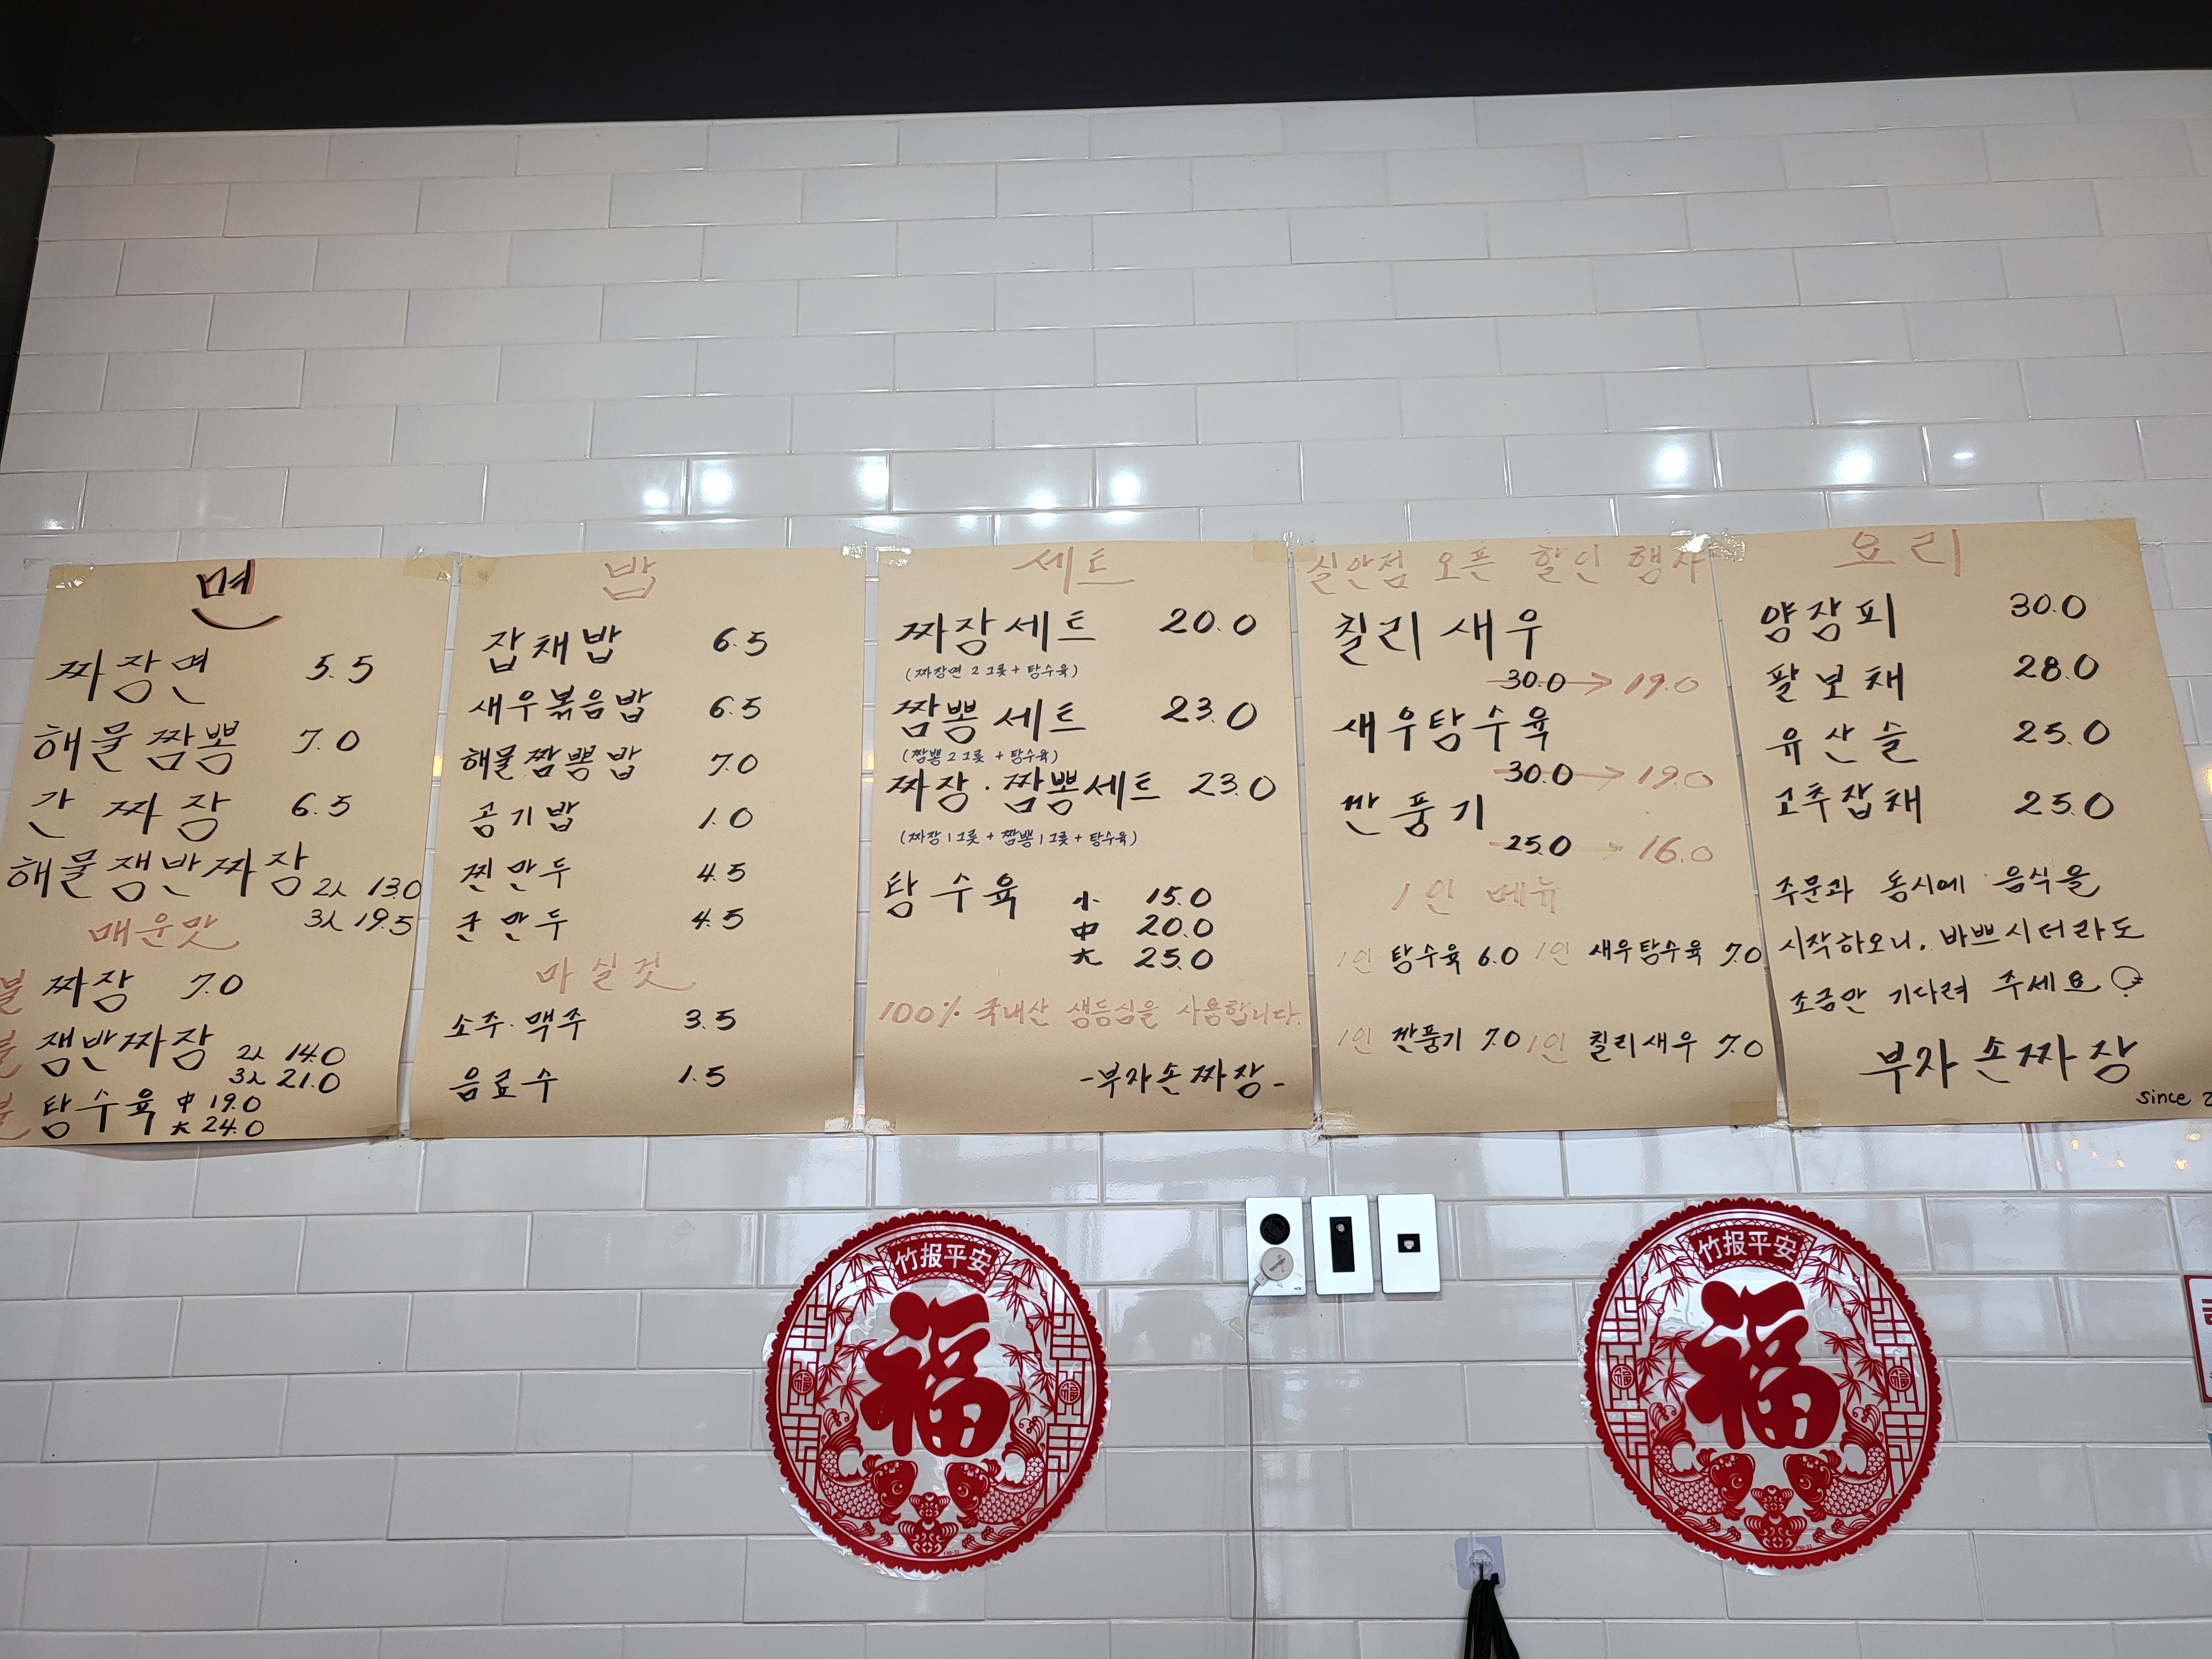 면
짜장면 5.5
해물짬뽕 7.0
간짜장 6.5
해물쟁반짜장 2人 13.0
3人 19.5
매운맛
불 짜장 7.0
불 쟁반짜장 2人 14.0
3人 21.0
불 탕수육 中 19.0
大 24.0
밥
잡채밥 6.5
새우볶음밥 6.5
해물짬뽕밥 7.0
공기밥 1.0
찐만두 4.5
군만두 4.5
마실것
소주·맥주 3.5
음료수 1.5
세트
짜장세트 20.0
(짜장면 2그릇 + 탕수육)
짬뽕세트 23.0
(짬뽕 2그릇 + 탕수육)
짜장·짬뽕세트 23.0
(짜장 1그릇 + 짬뽕 1그릇 + 탕수육)
탕수육 小 15.0
中 20.0
大 25.0
100% 국내산 생등심을 사용합니다.
-부자손짜장-
실안점 오픈 할인 행사
칠리새우
30.0 → 19.0
새우탕수육
30.0 → 19.0
깐풍기
25.0 → 16.0
1인 메뉴
1인 탕수육 6.0 1인 새우탕수육 7.0
1인 깐풍기 7.0 1인 칠리새우 7.0
요리
양장피 30.0
팔보채 28.0
유산슬 25.0
고추잡채 25.0
주문과 동시에 음식을
시작하오니, 바쁘시더라도
조금만 기다려 주세요
부자손짜장
since 2
竹报平安
福
竹报平安
福